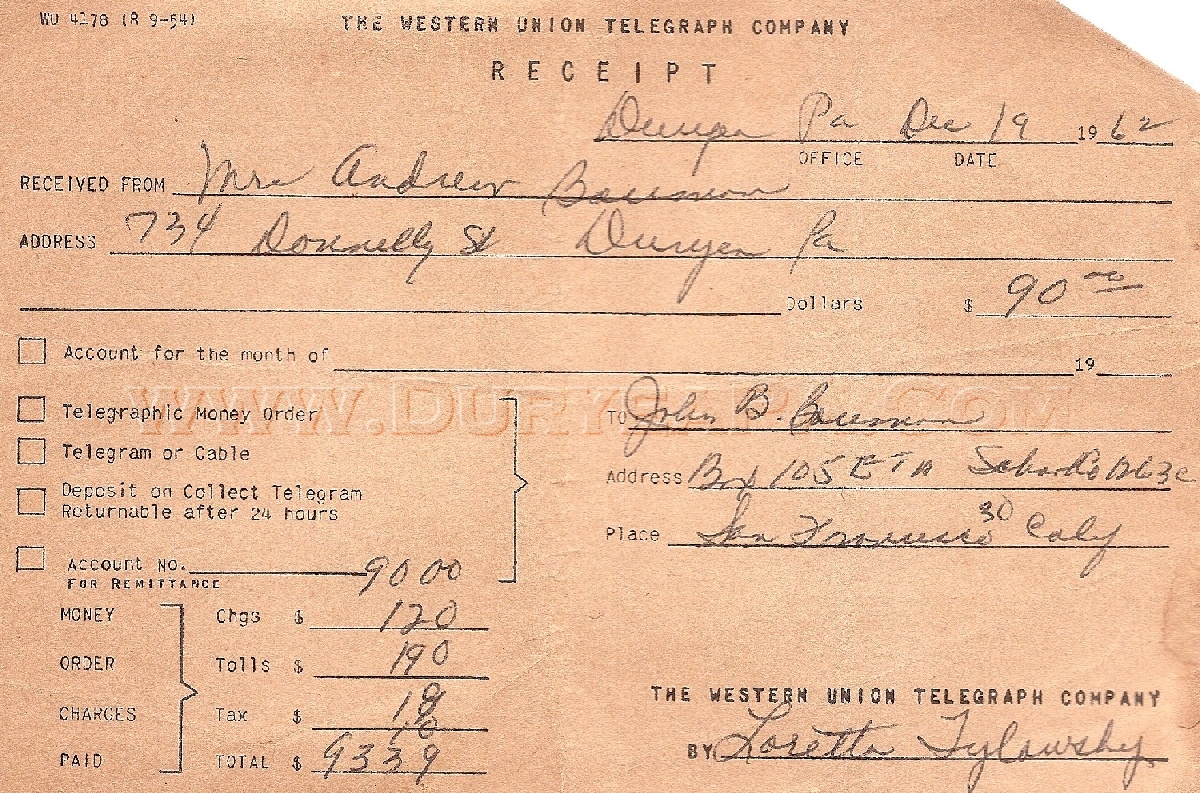 WU 4278 (R 9-54)
THE WESTERN UNION TELEGRAPH COMPANY
RECEIPT
Duryea Pa Dec 19 1962
OFFICE DATE
RECEIVED FROM Mrs Andrew Bauman
ADDRESS 734 Donnelly St Duryea Pa
Dollars $ 90 00
Account for the month of 19
WWW.DURYEAPA.COM
Telegraphic Money Order
TO John B. Bauman
Telegram or Cable
Address Box 105 ETA Schools
Deposit on Collect Telegram
Returnable after 24 hours
Place San Francisco 30 Calif
Account No.
FOR REMITTANCE
90 00
MONEY Chgs $ 120
ORDER Tolls $ 190
CHARGES Tax $ 19
10
PAID TOTAL $ 9339
THE WESTERN UNION TELEGRAPH COMPANY
BY Loretta Tylawsky